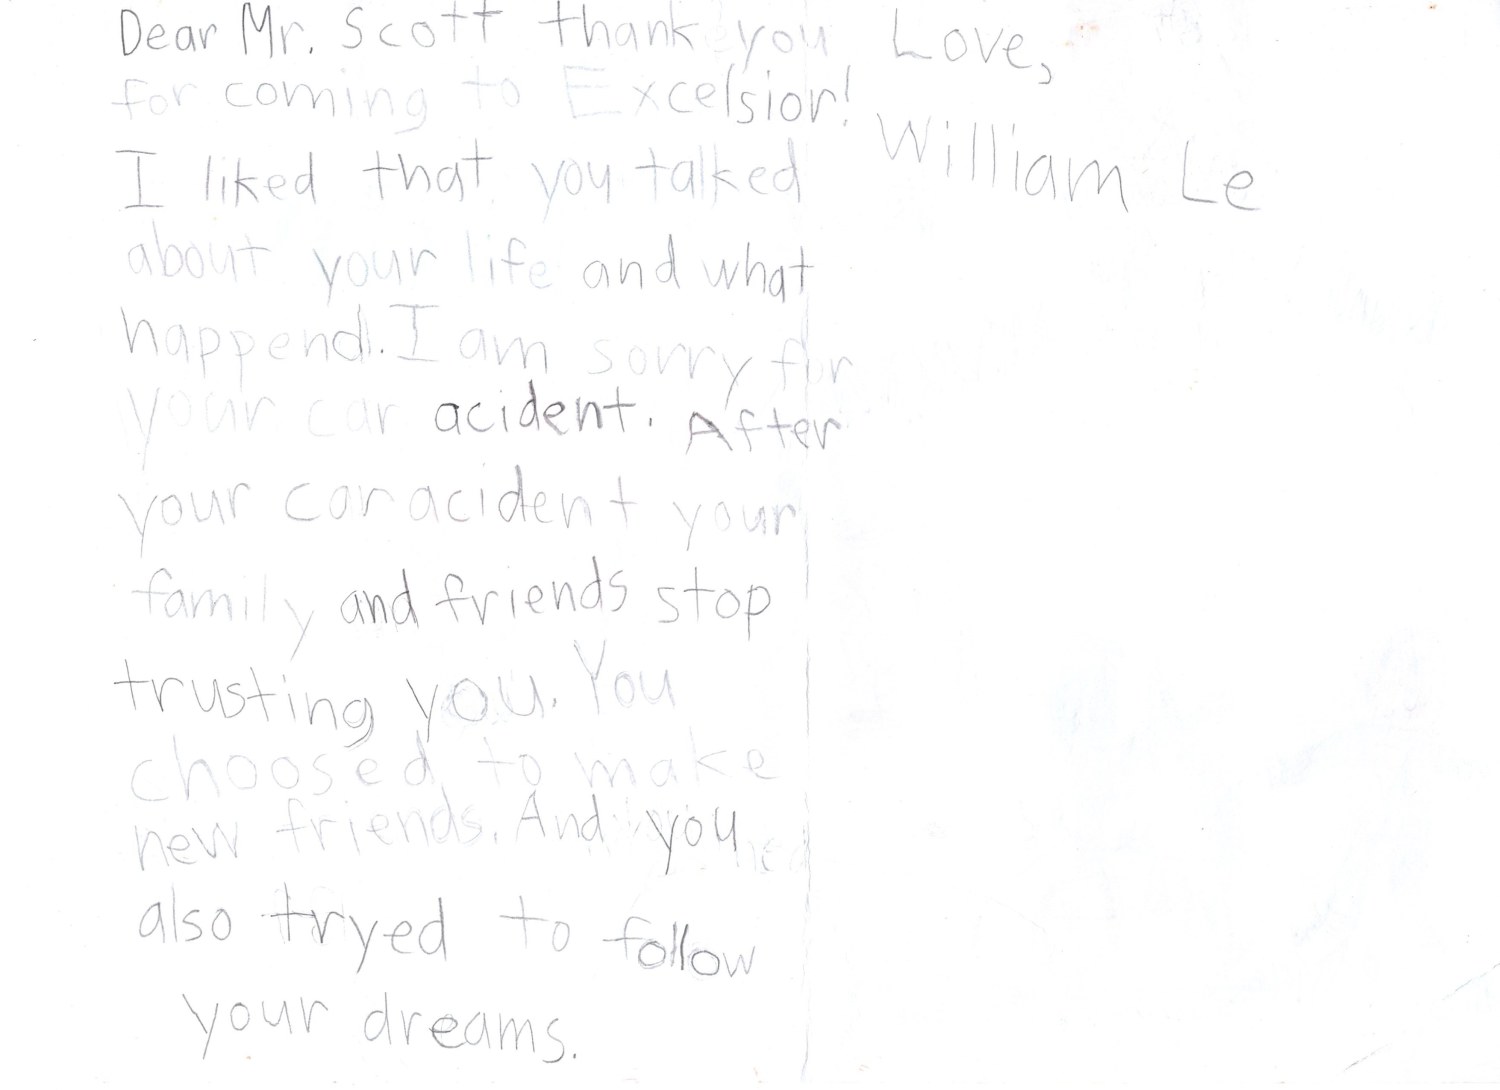 Dear Mr. Scott thank you
for coming to Excelsior!
I liked that you talked
about your life and what
happend. I am sorry for
your car acident. After
your car acident your
family and friends stop
trusting you. You
choosed to make
new friends. And you
also tryed to follow
your dreams.
Love,
William Le